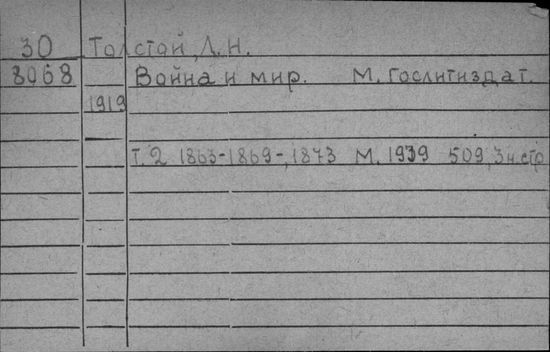 30 Толстой, Л. Н.
8068 Война и мир. М. Гослитиздат.
1919
т. 2 1863-1869-, 1873 М. 1939 509, 3 н. стр